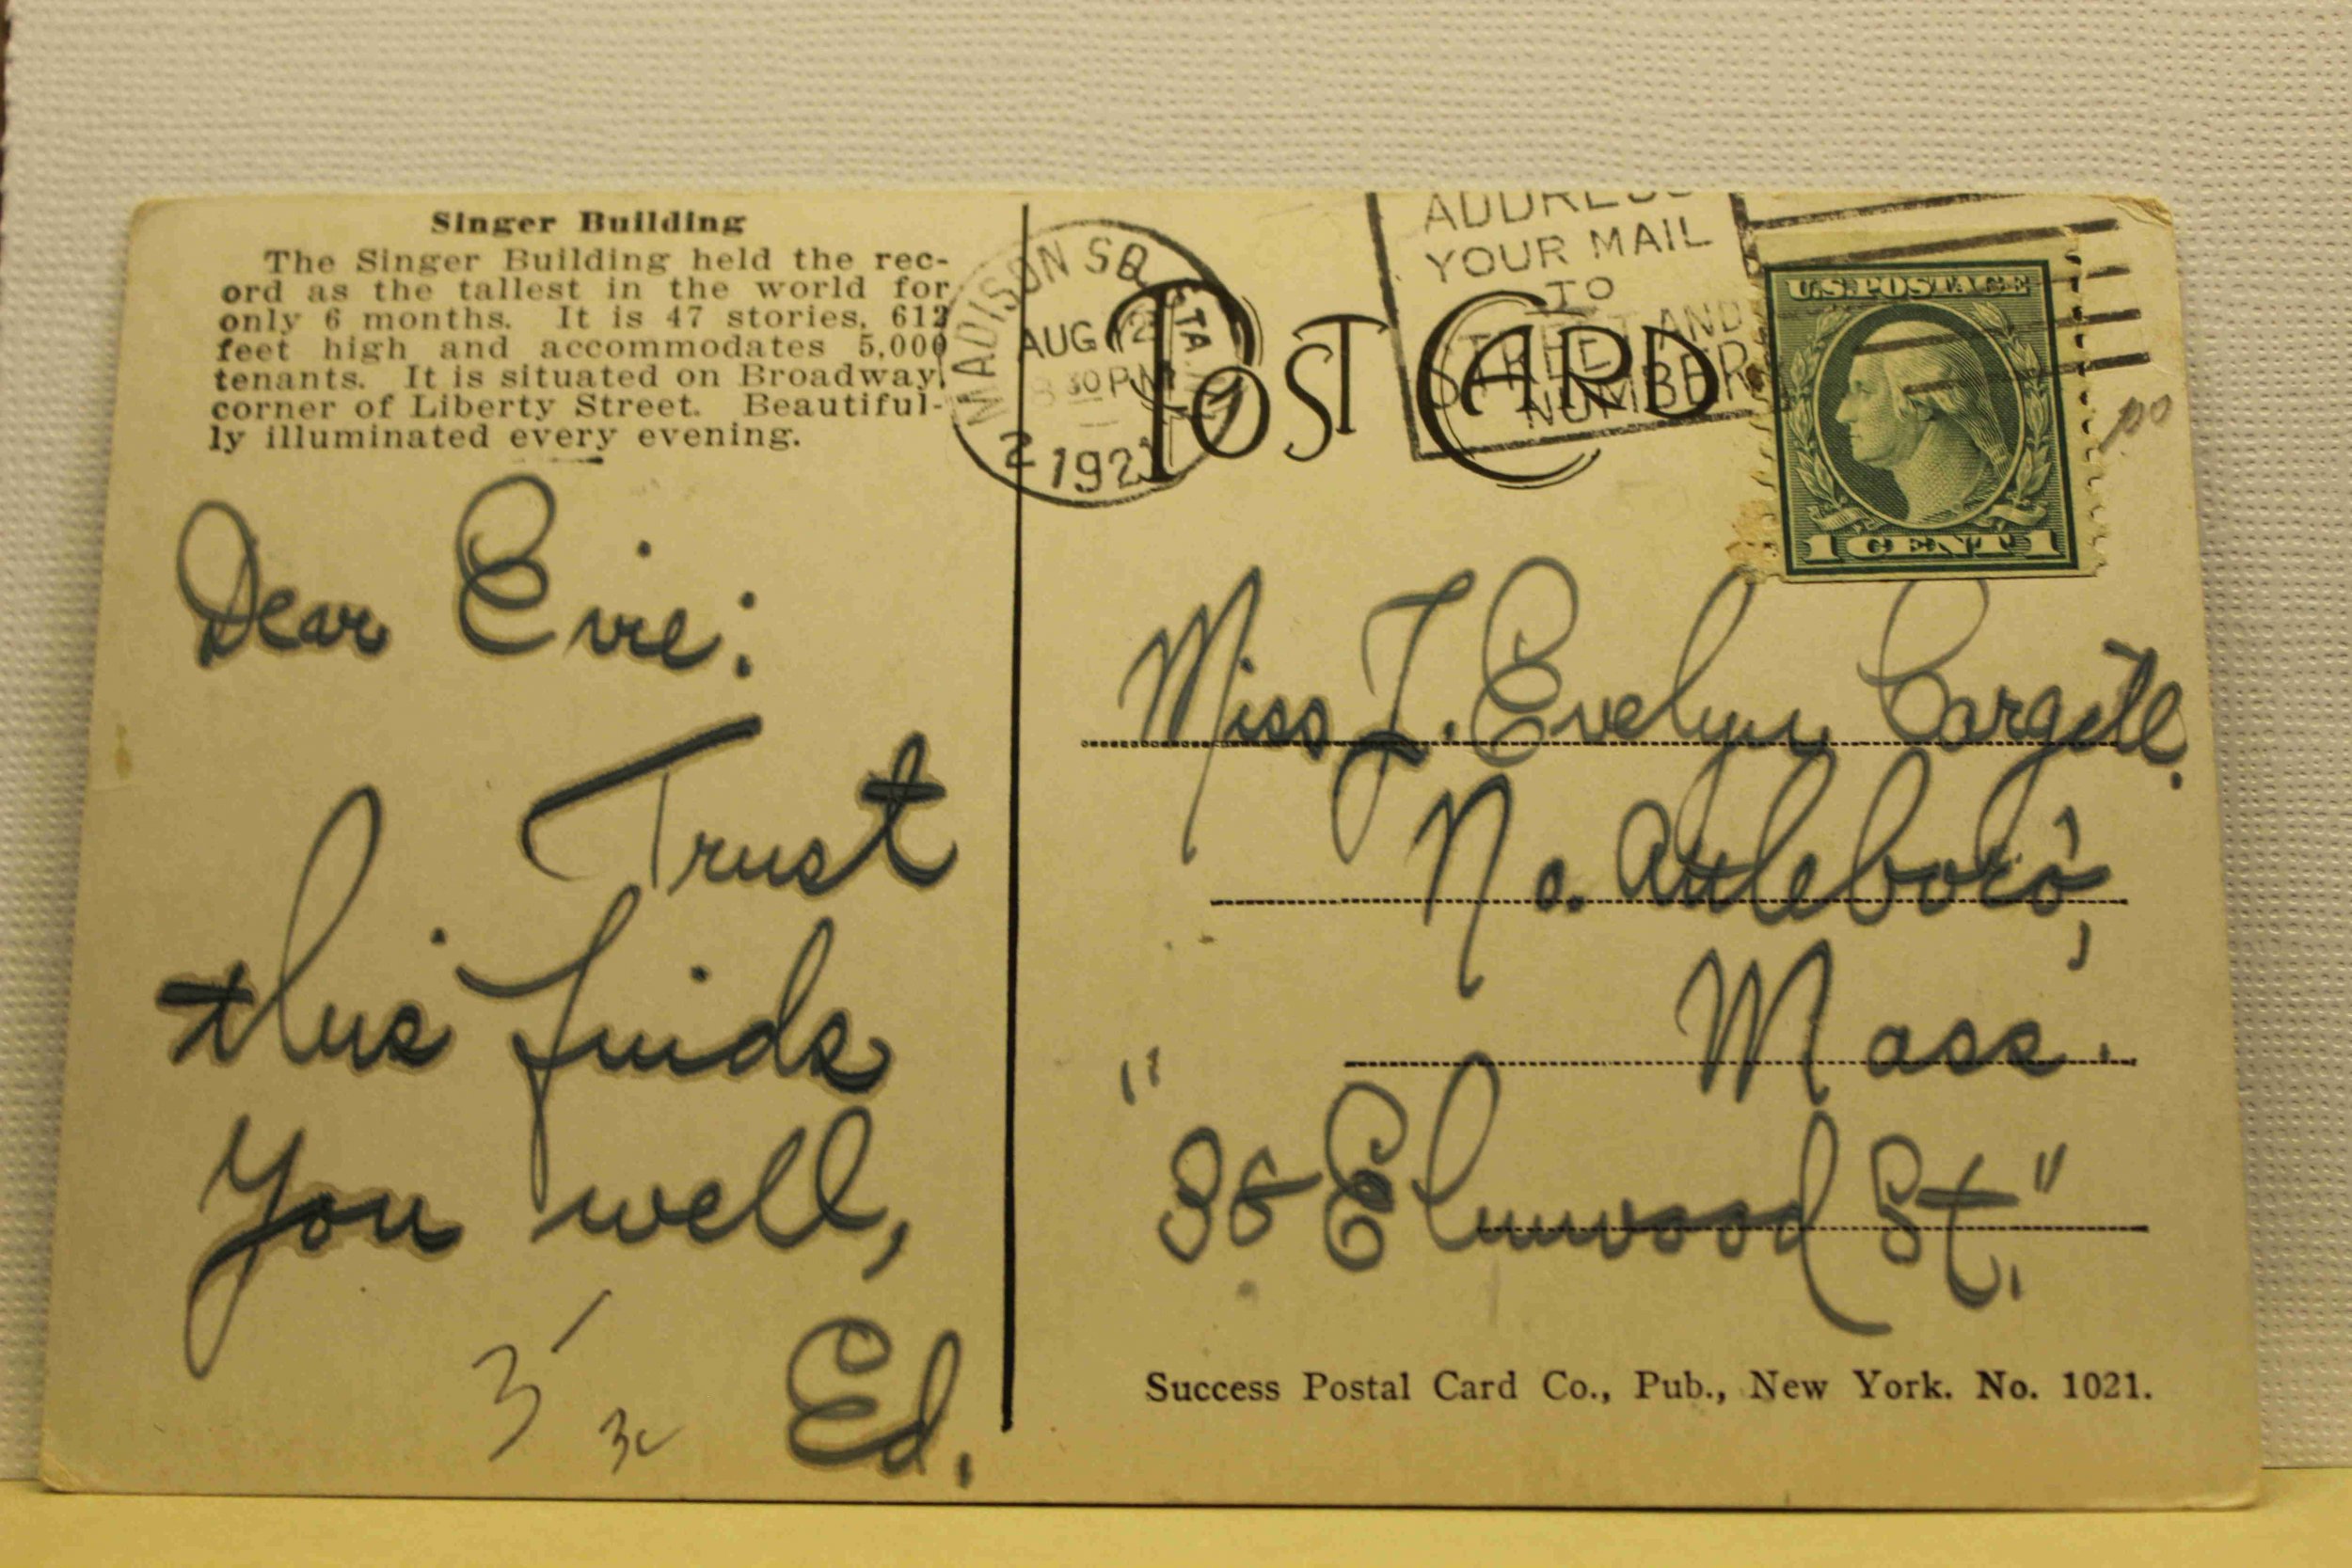 Singer Building
The Singer Building held the rec-
ord as the tallest in the world for
only 6 months. It is 47 stories, 612
feet high and accommodates 5,000
tenants. It is situated on Broadway,
corner of Liberty Street. Beautiful-
ly illuminated every evening.
Dear Evie:
Trust
this finds
You well,
Ed.
3
3c
MADISON SQ. STA.
AUG 12
30 PM
2 192
POST CARD
ADDRESS
YOUR MAIL
TO
STREET AND
NUMBER
U.S. POSTAGE
1 CENT 1
Miss J. Evelyn Cargill.
No. Attleboro',
Mass.
"38 Elmwood St."
Success Postal Card Co., Pub., New York. No. 1021.